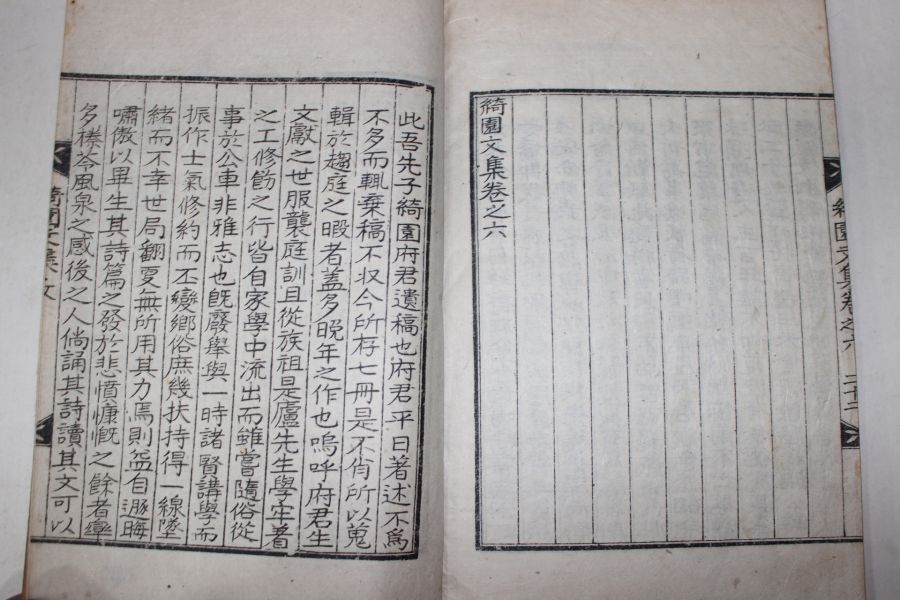 綺園文集卷之六 二十二
綺園文集卷之六
此吾先子綺園府君遺稿也府君平日著述不爲
不多而輒棄稿不収今所存七冊是不肖所以蒐
輯於趨庭之暇者盖多晩年之作也嗚呼府君生
文獻之世服襲庭訓且從族祖是廬先生學牢著
之工修飭之行皆自家學中流出而雖嘗隨俗從
事於公車非雅志也旣廢舉與一時諸賢講學而
振作士氣修約而丕變鄉俗庶幾扶持得一線墜
緖而不幸世局翻覆無所用其力焉則益自晦
嘯傲以畢生其詩篇之發於悲憤慷慨之餘者
多榛苓風泉之感後之人倘誦其詩讀其文可以
綺園文集